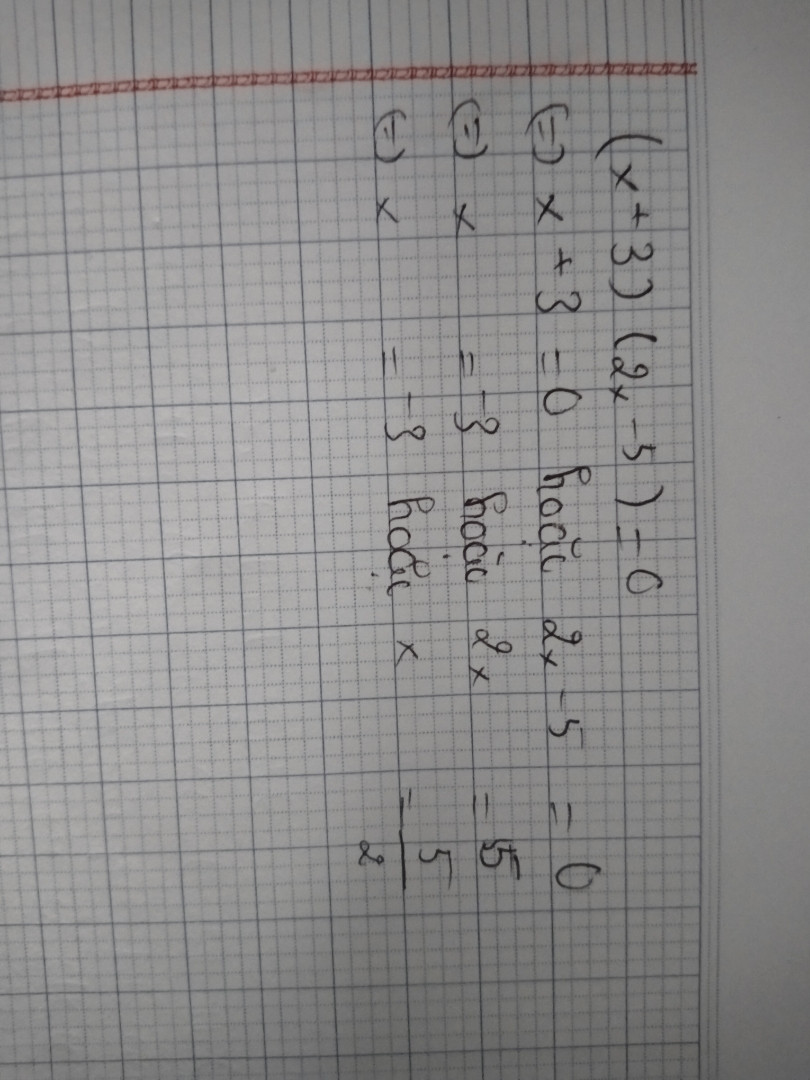 (x+3)(2x-5)=0
(=) x+3 =0 hoặc 2x-5 =0
(=) x =-3 hoặc 2x =5
(=) x =-3 hoặc x =5/2